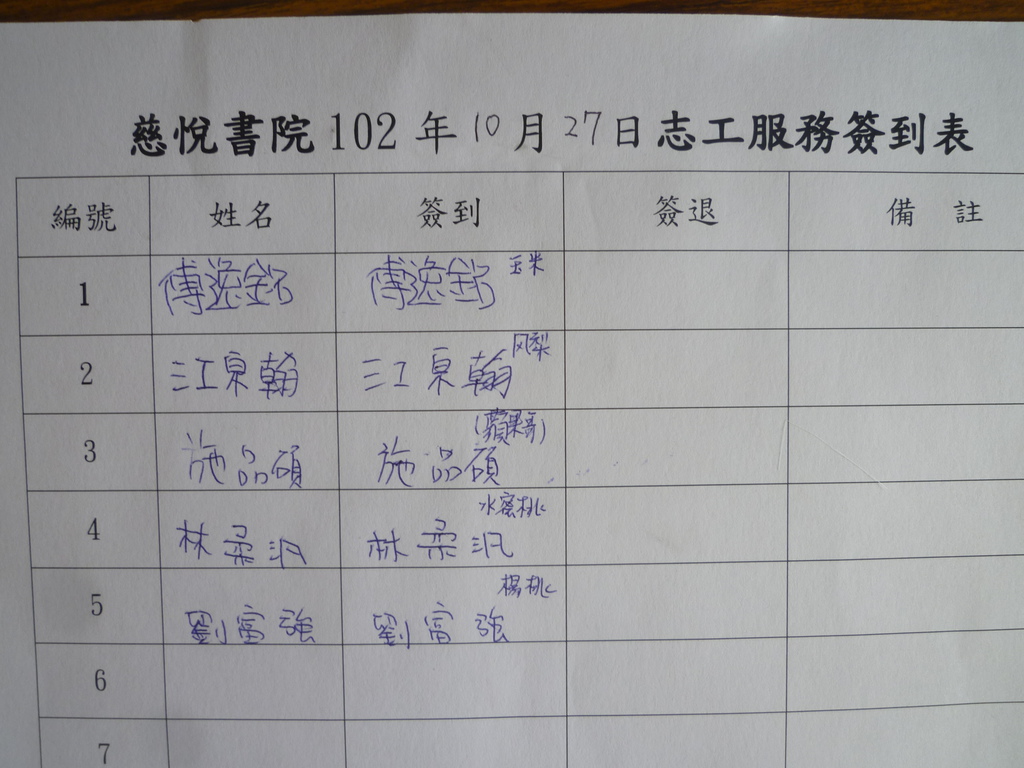 慈悅書院102年10月27日志工服務簽到表
編號 姓名 簽到 簽退 備 註
1 傅逸銘 傅逸銘 玉米
2 江泉翰 江泉翰 凤梨
3 施品碩 施品碩 (蘋果哥)
4 林柔汎 林柔汎 水蜜桃
5 劉富強 劉富強 楊桃
6
7